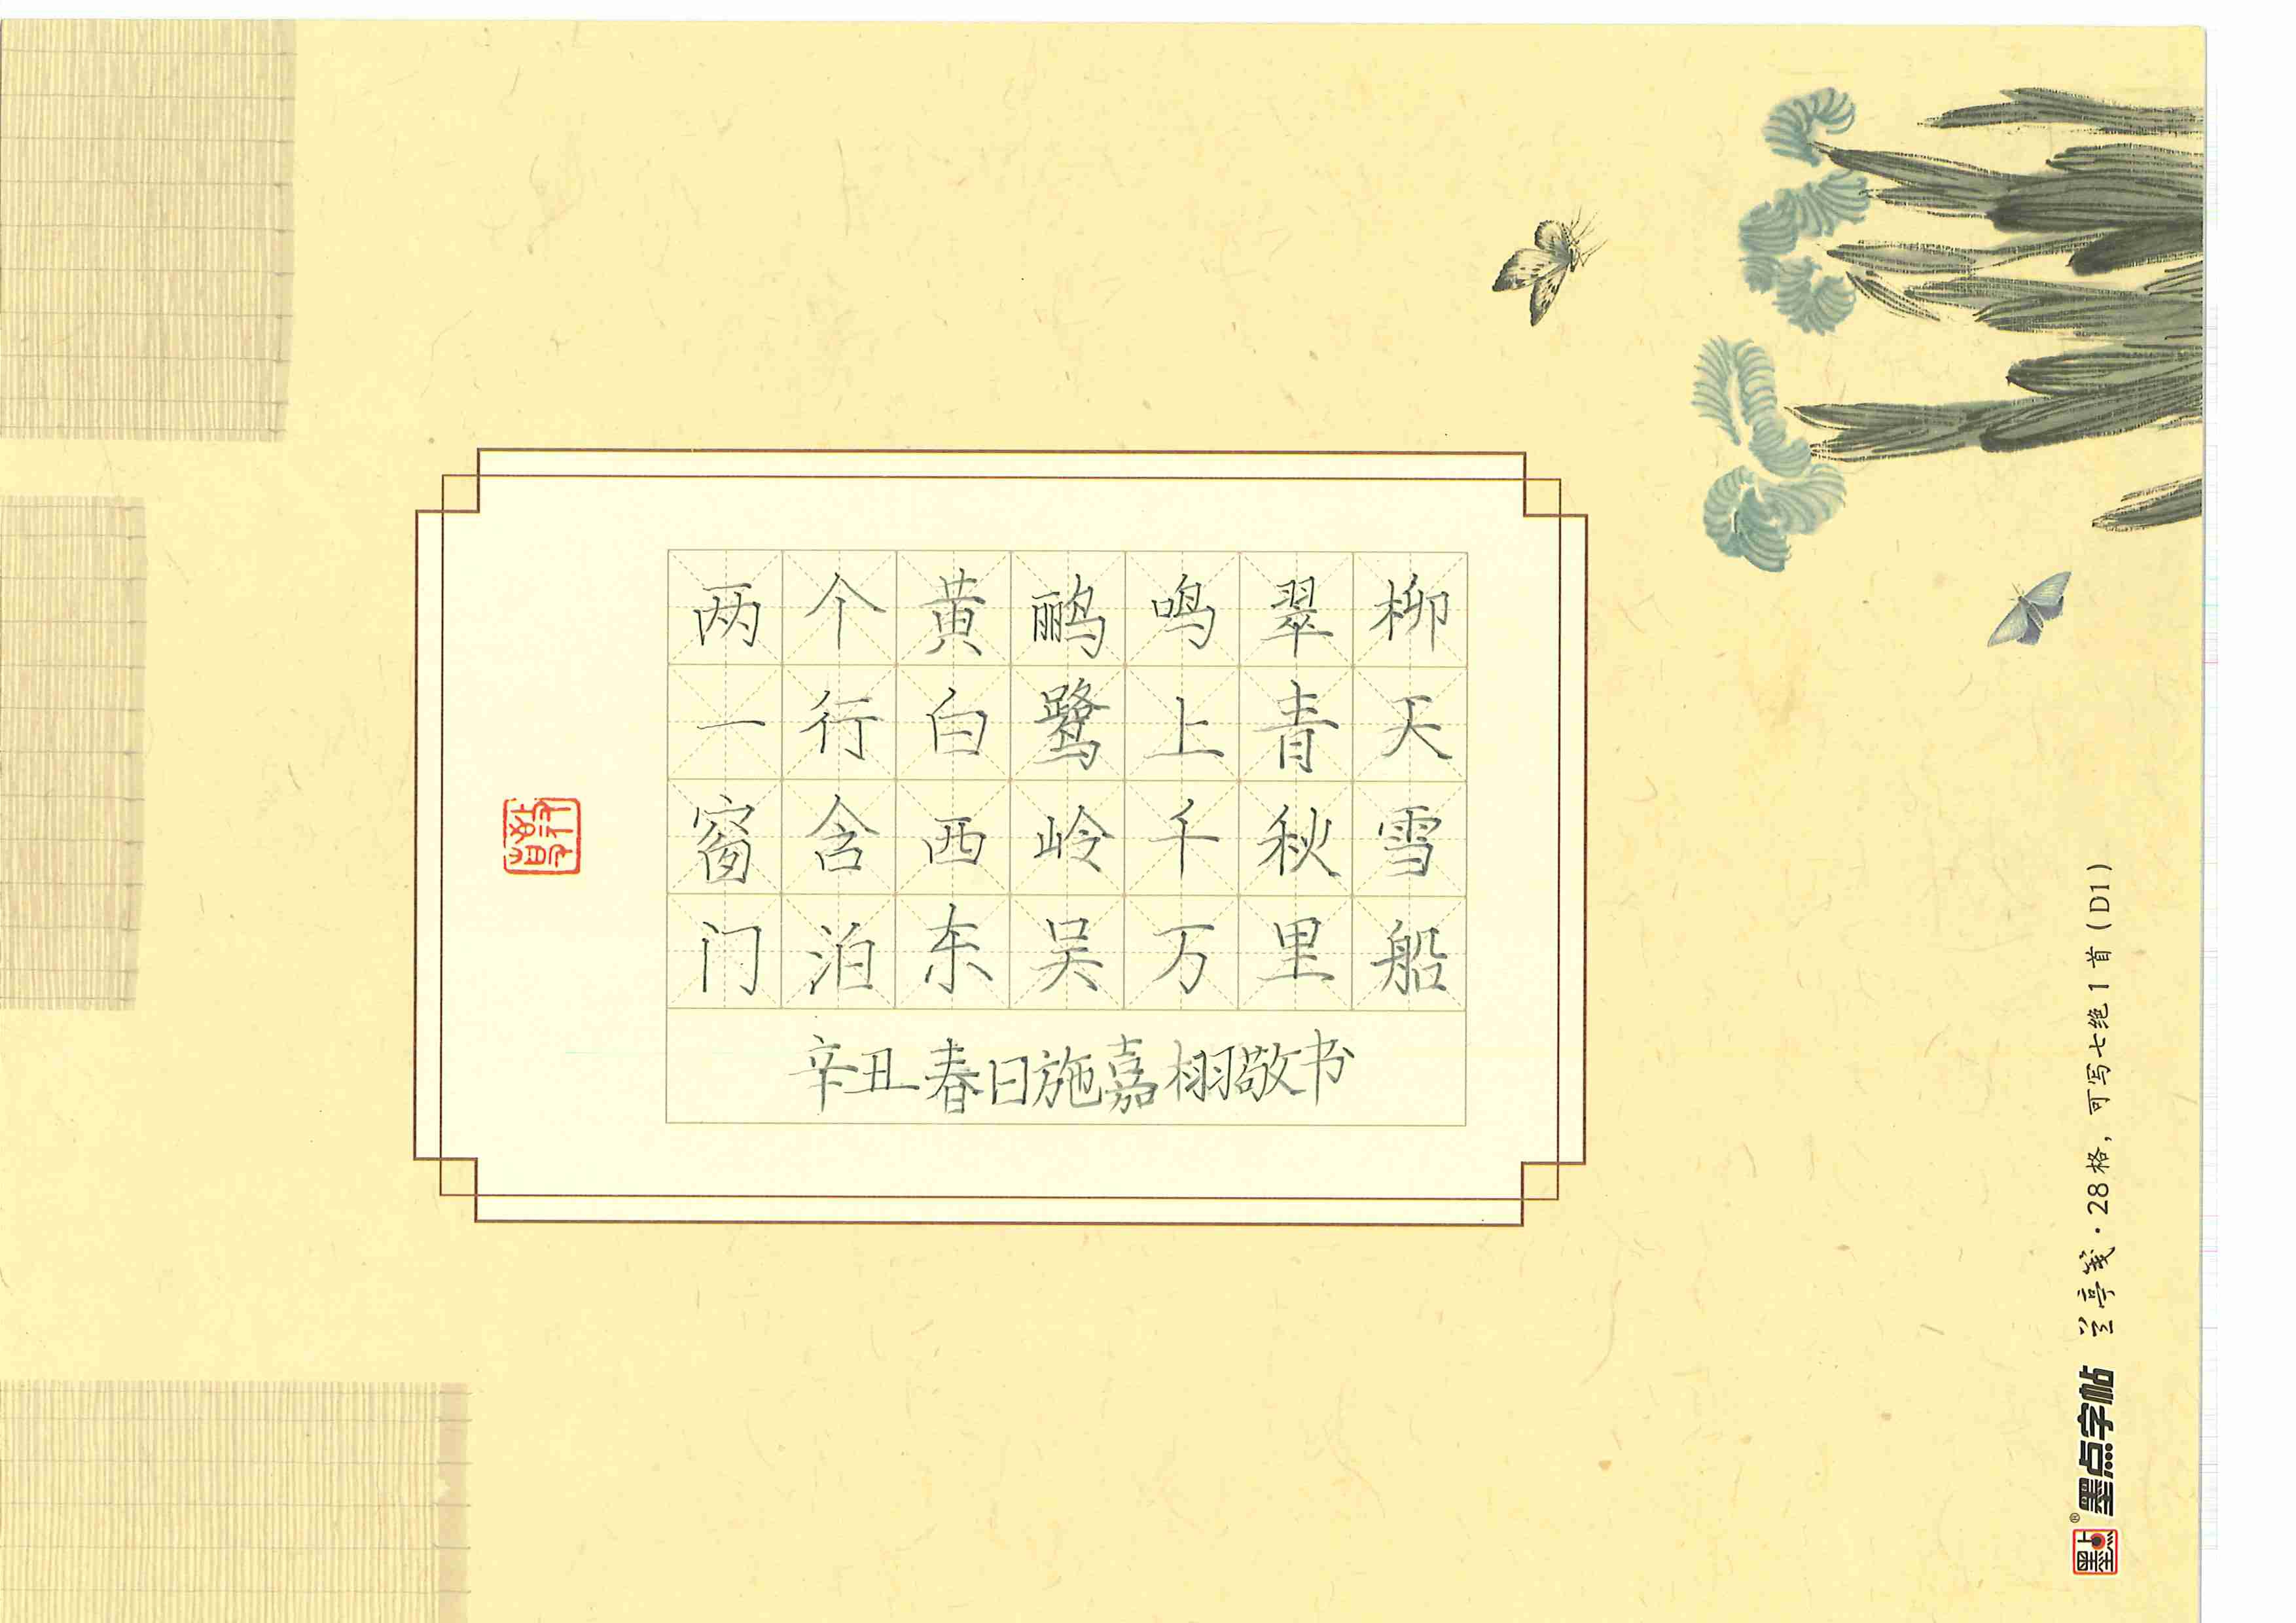 两个黄鹂鸣翠柳
一行白鹭上青天
窗含西岭千秋雪
门泊东吴万里船
辛丑春日施嘉栩敬书
墨点字帖® 兰亭笺·28格，可写七绝1首（D1）